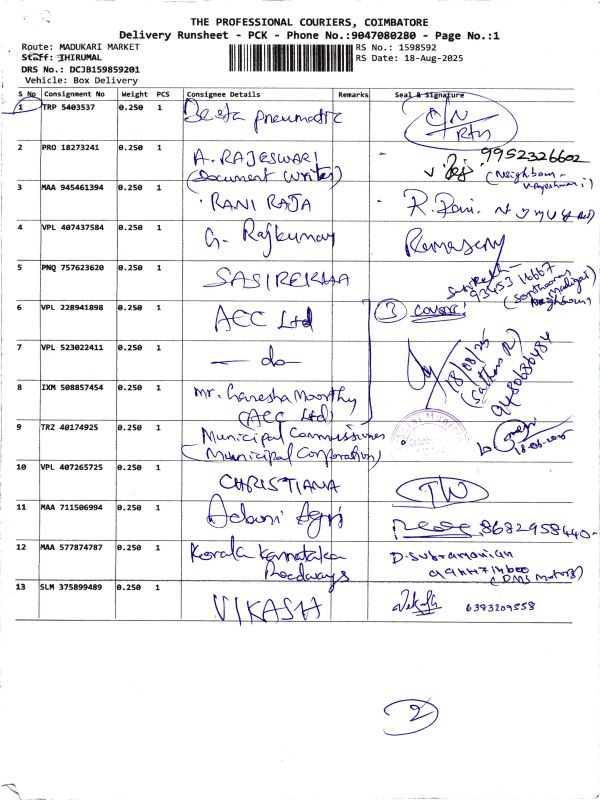 THE PROFESSIONAL COURIERS, COIMBATORE
Delivery Runsheet - PCK - Phone No.:9047080280 - Page No.:1
Route: MADUKARI MARKET
Staff: IHIRUMAL
DRS No.: DCJB159859201
Vehicle: Box Delivery
RS No.: 1598592
RS Date: 18-Aug-2025
S No Consignment No Weight PCS Consignee Details Remarks Seal & Signature
1 TRP 5403537 0.250 1 pneumatic
2 PRO 18273241 0.250 1 A. RAJESWARI 9952326602
(Document Writer) (Neighbour -
3 MAA 945461394 0.250 1 RANI RAJA R. Rani
4 VPL 407437584 0.250 1 G. Rajkumar
5 PNQ 757623620 0.250 1 SASIREKHA 93453 16667
Neighbour)
6 VPL 228941898 0.250 1 ACC Ltd (3) cover
7 VPL 523022411 0.250 1 — do — 18/08/25
8 IXM 508857454 0.250 1 Mr. Ganesha Moorthy 9480686484
(ACC Ltd)
9 TRZ 40174925 0.250 1 Municipal Commissioner
(Municipal Corporation)
10 VPL 407265725 0.250 1 CHRISTIANA TW
11 MAA 711506994 0.250 1 Agri 8682958440
12 MAA 577874787 0.250 1 Kerala Karnataka D. Subramanian
Roadways (DMS Motors)
13 SLM 375899489 0.250 1 VIKASH 6393209558
2